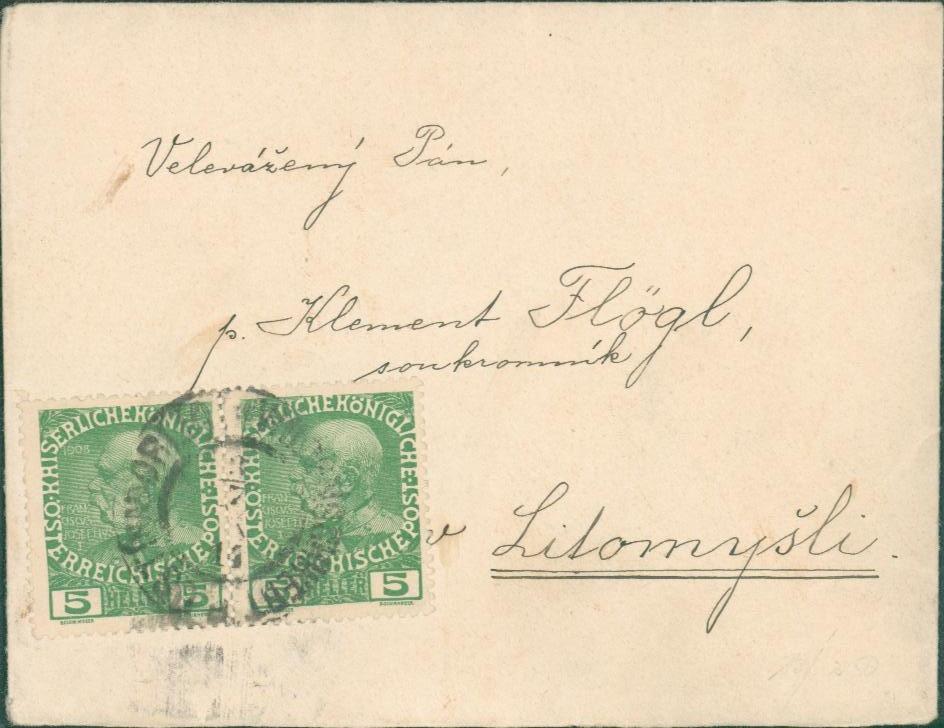 Velevážený Pán,
p. Klement Flögl,
soukromník
v Litomyšli.
KAISERLICHE KÖNIGLICHE ÖSTERREICHISCHE POST
1908
FRANCISCVS JOSEPH I
5 HELLER 5
KAISERLICHE KÖNIGLICHE ÖSTERREICHISCHE POST
FRANCISCVS JOSEPH I
5 HELLER 5